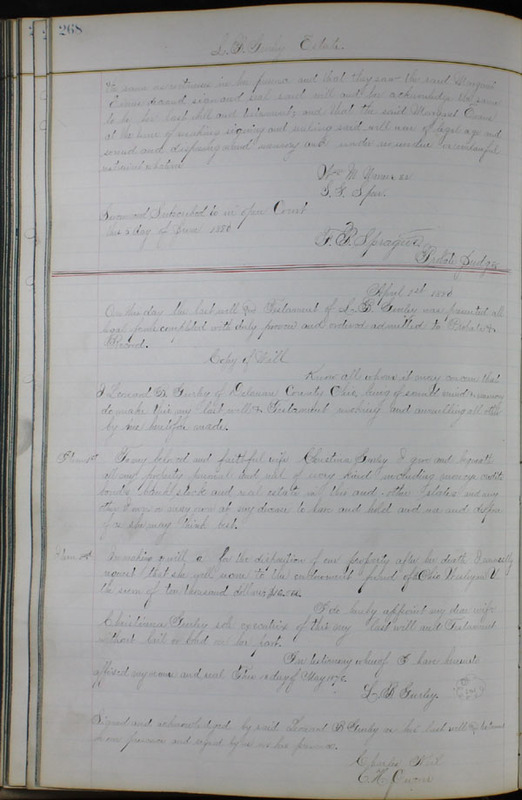 268
L. B. Gurley Estate.
to same as witness in her presence and that they saw the said Margaret
Evans sign and seal said will and her acknowledge the same
to be her last will and testament, and that the said Margaret Evans
at the time of making signing and sealing said will was of legal age and
sound and disposing mind memory and under no undue or unlawful
restraint whatever.
Wm M Warren
S. F. Spear.
Sworn and Subscribed to in open Court
this 3 day of June 1880
F. P. Sprague
Probate Judge
April 1st 1880
On this day the last will & Testament of L B Gurley was presented all
legal forms complied with duly proven and ordered admitted to Probate &
Record.
Copy of Will
Know all whom it may concern that
I Leonard B. Gurley of Delaware County Ohio, being of sound mind & memory
do make this my last will & Testament revoking and annulling all other
by me heretofore made.
Item 1st To my beloved and faithful wife Christina Gurley I give and bequeath
all my property personal and real of every kind including moneys credits
bonds, bank stock and real estate in this and other States and any
other I own or may own at my decease to have and hold and use and dispose
of as she may think best.
Item 2nd In making a will for the distribution of our property after her death I
request that she will to the endowment fund of Ohio Wesleyan U
the sum of ten thousand dollars
I do hereby appoint my dear wife
Christiana Gurley sole executrix of this my last will and Testament
without bail or bond on her part.
In testimony whereof I have hereunto
affixed my name and seal this day of May 1876.
L B Gurley. Seal
Signed and acknowledged by said Leonard B Gurley as his last will & testament
in our presence and signed by us in his presence.
Charles
C. H. Owen